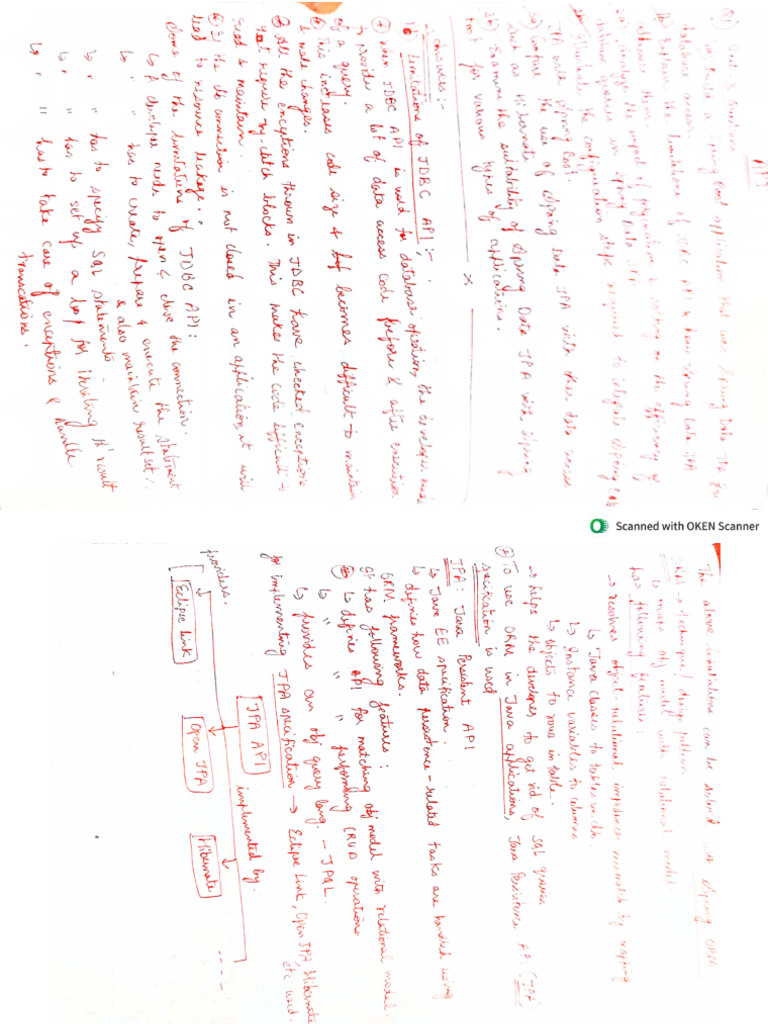 Unit-3 Questions
1a) Build a Spring Boot application that uses Spring Data JPA for
database access.
1b) Explain the limitations of JDBC API & how Spring Data JPA
addresses them.
2a) Analyze the impact of pagination & sorting on the efficiency of
database queries in Spring Data JPA.
the configuration steps required to integrate Spring Data
JPA with Spring Boot.
3a) Compare the use of Spring Data JPA with other data access
such as Hibernate
3b) Examine the suitability of Spring Data JPA with Spring
Boot for various types of applications.
x
- Answers :-
1b Limitations of JDBC API :-
When JDBC API is used for database operation, the developer needs
to provide a lot of data access code before & after execution
of a query.
This increases code size & becomes difficult to maintain
& make changes.
All the exceptions thrown in JDBC have checked exceptions
that require try-catch blocks. This makes the code difficult to
read & maintain.
If the db connection is not closed in an application, it will
lead to resource leakage.
Some of the limitations of JDBC API:
↳ A developer needs to open & close the connection.
↳ " " has to create, prepare & execute the statement
& also maintain resultset.
↳ " " has to specify SQL statements
↳ " " has to set up a loop for iterating the result
↳ " " has to take care of exceptions & handle
transactions.
Scanned with OKEN Scanner
The above limitations can be solved with Spring ORM
ORM → technique/design pattern
↳ maps obj model with relational model.
has following features:
→ resolves object relational impedance mismatch by mapping
↳ Java classes to tables in db
↳ Instance variables to columns
↳ objects to rows in table.
→ helps the developer to get rid of SQL queries
To use ORM in Java applications, Java Persistence API (JPA)
specification is used
JPA: Java Persistent API
↳ Java EE specification.
↳ defines how data persistence-related tasks are handled using
ORM frameworks.
It has following features:
↳ defines API for matching obj model with relational model.
↳ " " " performing CRUD operations
↳ provides an obj query lang. - JPQL.
for implementing JPA specification → Eclipse Link, Open JPA, Hibernate
etc used.
providers.
JPA API
implemented by.
Eclipse Link
Open JPA
Hibernate